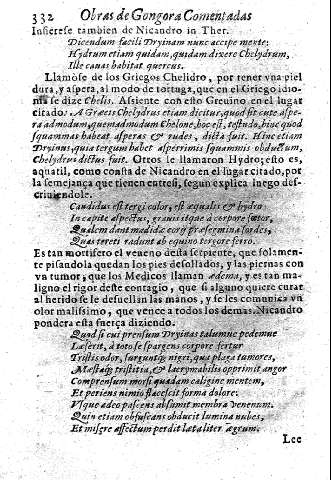 332 Obras de Gongora Comentadas
Infierese tambien de Nicandro in Ther.
Dicendum facili Dryinam nunc accipe mente;
Hydrum etiam quidam, quidam dixere Chelydrum,
Ille canas habitat quercus.
Llamòse de los Griegos Chelidro, por tener vna piel
dura, y aspera, al modo de tortuga, que en el Griego idio-
ma se dize Chelis. Assiente con esto Grevino en el lugar
citado: A Græcis Chelydrus etiam dicitur, quod sit cute aspe-
ra admodum, quemadmodum Chelone, hoc est, testudo, hinc quod
squammas habeat asperas & rudes, dicta fuit. Hinc etiam
Dryinus, quia tergum habet asperrimis squammis obductum,
Chelydrus dictus fuit. Otros le llamaron Hydro; esto es,
aquatil, como consta de Nicandro en el lugar citado, por
la semejança que tienen entre si, segun explica luego des-
criuiendole.
Candidus est tergi color, est æqualis & hydro
In capite aspectus, grauis itque à corpore fœtor,
Qualem dant madidæ coria præsegmina sordes,
Quas tereti radunt ab equino tergore ferro.
Es tan mortifero el veneno desta serpiente, que solamen-
te pisandola quedan los pies desollados, y las piernas con
vn tumor, que los Medicos llaman œdema, y es tan ma-
ligno el rigor deste contagio, que si alguno quiere curar
al herido se le desuellan las manos, y se les comunica vn
olor malissimo, que vence a todos los demas. Nicandro
pondera esta fuerça diziendo.
Quod si cui prensum Dryinas talumue pedemue
Læserit, à toto se spargens corpore fertur
Tristis odor, surguntq; nigri, qua plaga tumores,
Mæstaq; tristitia, & lacrymabilis opprimit angor
Comprensum morsu quadam caligine mentem,
Et periens nimio flaccescit forma dolore:
Vsque adeo pascens absumit membra venenum.
Quin etiam obfuscans obducit lumina nubes,
Et misere affectum perdit lataliter ægrum.
Lee